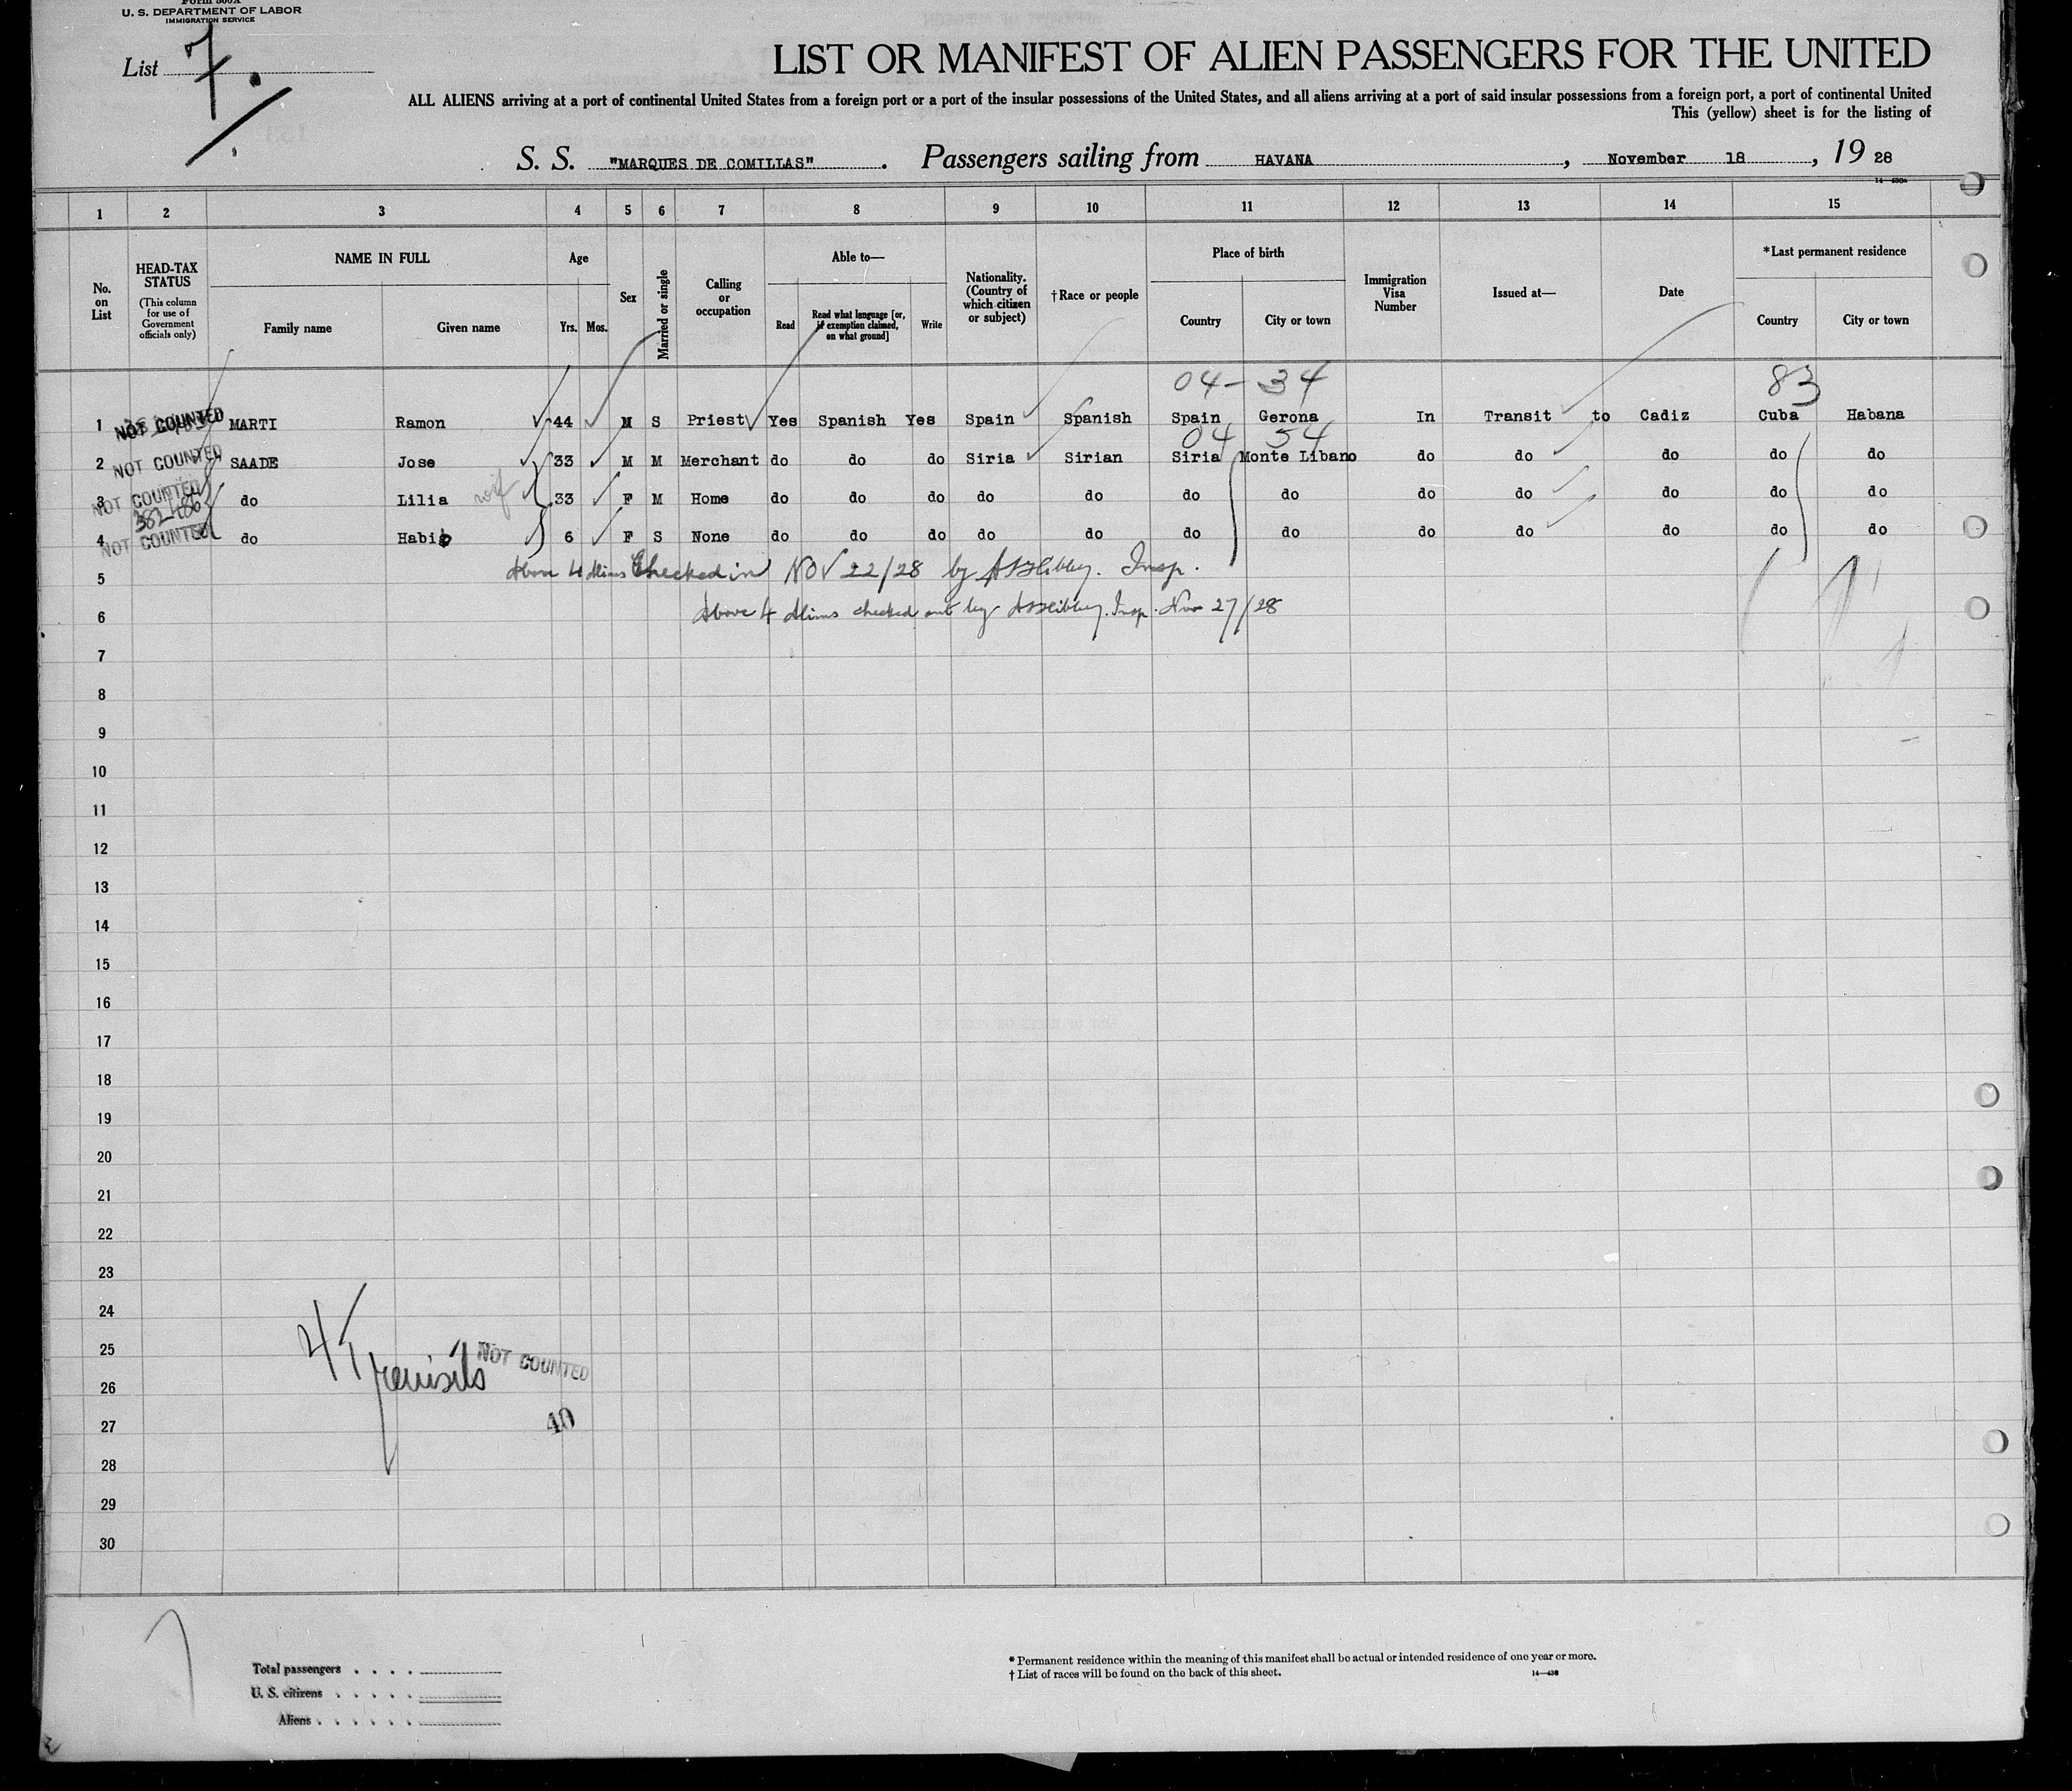 Form 500A
U. S. DEPARTMENT OF LABOR
IMMIGRATION SERVICE
List 7.
LIST OR MANIFEST OF ALIEN PASSENGERS FOR THE UNITED
ALL ALIENS arriving at a port of continental United States from a foreign port or a port of the insular possessions of the United States, and all aliens arriving at a port of said insular possessions from a foreign port, a port of continental United
This (yellow) sheet is for the listing of
S. S. "MARQUES DE COMILLAS". Passengers sailing from HAVANA, November 18, 19 28
1 2 3 4 5 6 7 8 9 10 11 12 13 14 15
No. on List
HEAD-TAX STATUS (This column for use of Government officials only)
NAME IN FULL Family name Given name
Age Yrs. Mos.
Sex
Married or single
Calling or occupation
Able to— Read Read what language [or, if exemption claimed, on what ground] Write
Nationality. (Country of which citizen or subject)
†Race or people
Place of birth Country City or town
Immigration Visa Number
Issued at—
Date
*Last permanent residence Country City or town
04-34 83
1 NOT COUNTED MARTI Ramon 44 M S Priest Yes Spanish Yes Spain Spanish Spain Gerona In Transit to Cadiz Cuba Habana
04 54
2 NOT COUNTED SAADE Jose 33 M M Merchant do do do Siria Sirian Siria Monte Libano do do do do do
3 NOT COUNTED do Lilia wif 33 F M Home do do do do do do do do do do do do
4 NOT COUNTED do Habib 6 F S None do do do do do do do do do do do do
5 Above 4 Aliens Checked in NOV 22/28 by Insp.
6 Above 4 Aliens checked out by Insp. Nov 27/28
7
8
9
10
11
12
13
14
15
16
17
18
19
20
21
22
23
24
25
26
27
28
29
30
4 Transits NOT COUNTED
40
Total passengers
U. S. citizens
Aliens
* Permanent residence within the meaning of this manifest shall be actual or intended residence of one year or more.
† List of races will be found on the back of this sheet.